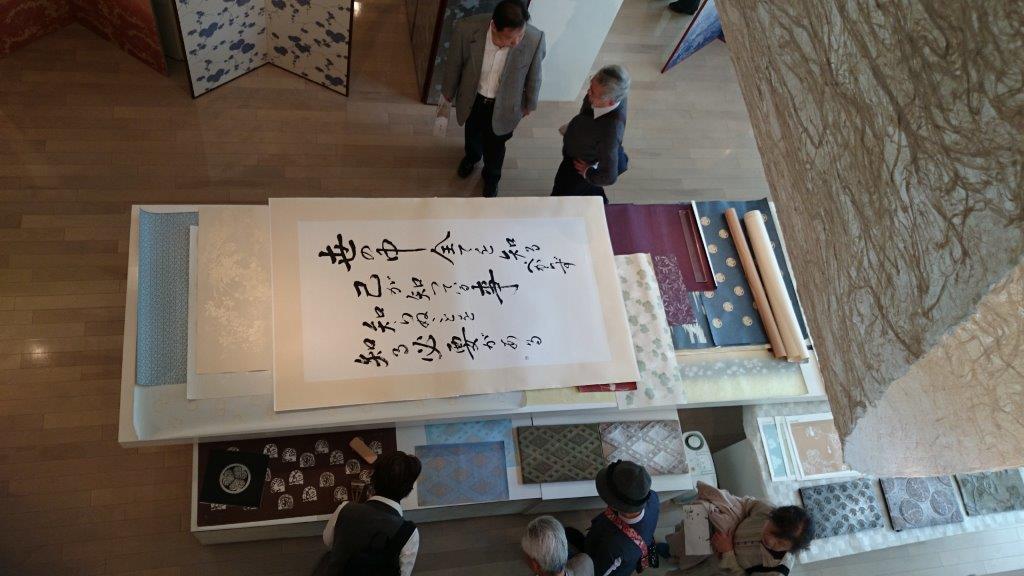 世の中全てを知るべからず
己が知っている事
知らないことを
知る必要がある